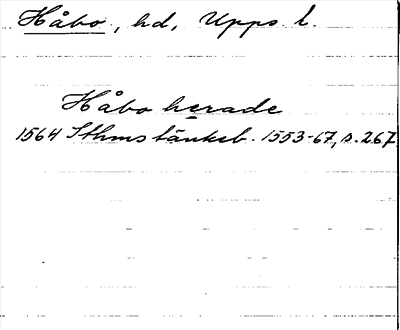 Håbo., hd, Upps. l.
Håbo herade
1564 Sthms tänkeb. 1553-67, s. 267